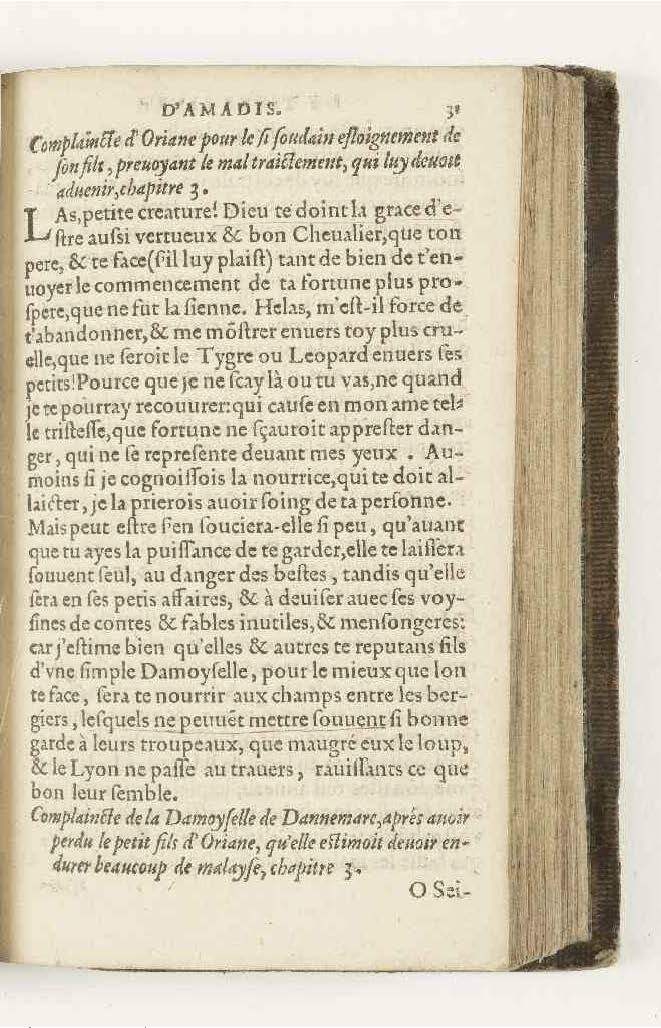 D'AMADIS. 31
Complaincte d'Oriane pour le si soudain esloignement de
son fils, preuoyant le mal traictement, qui luy deuoit
aduenir, chapitre 3.
LAs, petite creature! Dieu te doint la grace d'e-
stre aussi vertueux & bon Cheualier, que ton
pere, & te face (s'il luy plaist) tant de bien de t'en-
uoyer le commencement de ta fortune plus pro-
spere, que ne fut la sienne. Helas, m'est-il force de
t'abandonner, & me mõstrer enuers toy plus cru-
elle, que ne seroit le Tygre ou Leopard enuers ses
petits! Pource que je ne sçay là ou tu vas, ne quand
je te pourray recouurer: qui cause en mon ame tel-
le tristesse, que fortune ne sçauroit apprester dan-
ger, qui ne se represente deuant mes yeux. Au-
moins si je cognoissois la nourrice, qui te doit al-
laicter, je la prierois auoir soing de ta personne.
Mais peut estre s'en souciera-elle si peu, qu'auant
que tu ayes la puissance de te garder, elle te laissera
souuent seul, au danger des bestes, tandis qu'elle
sera en ses petis affaires, & à deuiser auec ses voy-
sines de contes & fables inutiles, & mensongeres:
car j'estime bien qu'elles & autres te reputans fils
d'vne simple Damoyselle, pour le mieux que lon
te face, sera te nourrir aux champs entre les ber-
giers, lesquels ne peuuẽt mettre souuent si bonne
garde à leurs troupeaux, que maugré eux le loup,
& le Lyon ne passe au trauers, rauissants ce que
bon leur semble.
Complaincte de la Damoyselle de Dannemarc, aprés auoir
perdu le petit fils d'Oriane, qu'elle estimoit deuoir en-
durer beaucoup de malayse, chapitre 3.
O Sei-